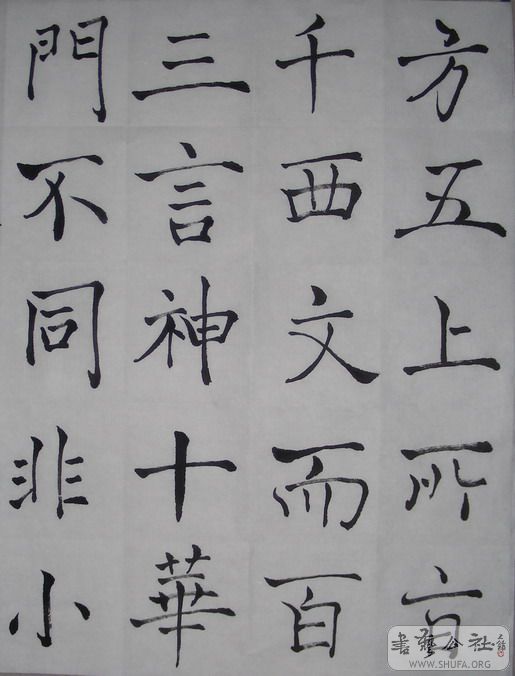 方五上所
千西文而百
三言神十華
門不同非小
書藝公社
WWW.SHUFA.ORG